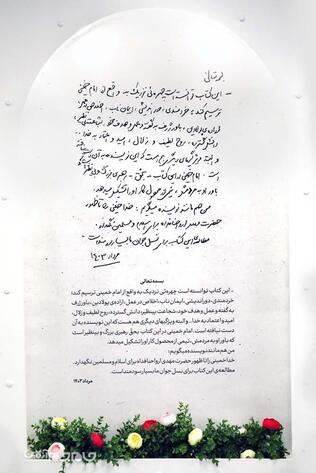 بسمه تعالی
- این کتاب توانسته است چهره‌ئی نزدیک به واقع از امام خمینی
ترسیم کند؛ خردمندی، دوراندیشی، ایمان ناب، اخلاص در عمل،
اراده‌ی پولادین، باور ژرف به گفته و عمل و هدف خود، شجاعت بینظیر،
دانش گسترده، روح لطیف و زلال، امید و اعتماد به خدا...
و البته ویژگیهای دیگری هم هست که این نویسنده به آن دست نیافته
است. امام خمینی در این کتاب بحق رهبری بزرگ و بینظیر است که
باور او به مردمش، نیمی از محصول کار او را تشکیل میدهد.
من هم مانند نویسنده میگویم: خدا خمینی را تا ظهور
حضرت مهدی ارواحنافداه برای اسلام و مسلمین نگهدارد.
مطالعه‌ی این کتاب برای نسل جوان ما بسیار سودمند است
مرداد ۱۴۰۳
بسمه تعالی
- این کتاب توانسته است چهره‌ئی نزدیک به واقع از امام خمینی ترسیم کند؛
خردمندی، دوراندیشی، ایمان ناب، اخلاص در عمل، اراده‌ی پولادین، باور ژرف
به گفته و عمل و هدف خود، شجاعت بینظیر، دانش گسترده، روح لطیف و زلال،
امید و اعتماد به خدا... والبته ویژگیهای دیگری هم هست که این نویسنده به آن
دست نیافته است. امام خمینی در این کتاب بحق رهبری بزرگ و بینظیر است
که باور او به مردمش، نیمی از محصول کار او را تشکیل میدهد.
من هم مانند نویسنده میگویم:
خدا خمینی را تا ظهور حضرت مهدی ارواحنا فداه برای اسلام و مسلمین نگهدارد.
مطالعه‌ی این کتاب برای نسل جوان ما بسیار سودمند است.
مرداد ۱۴۰۳